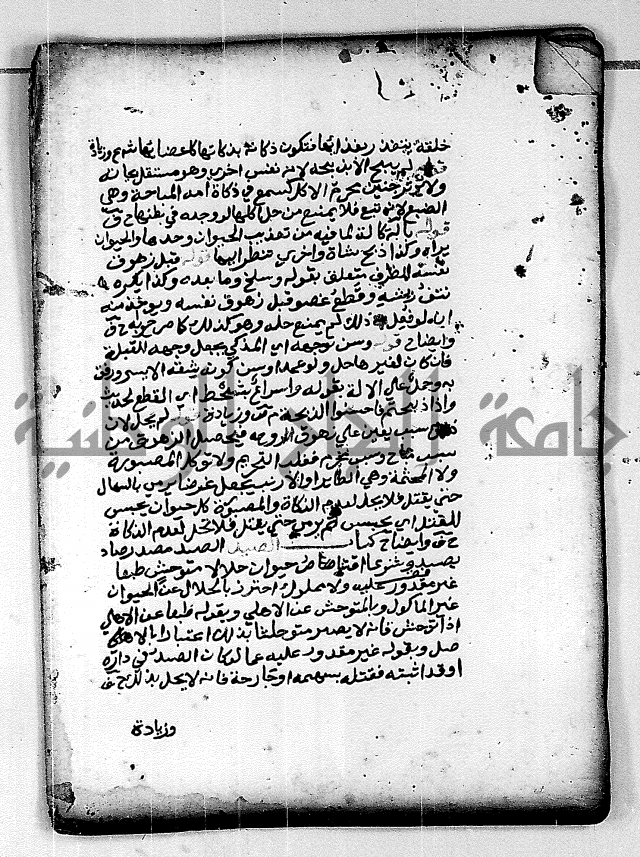 خلقه يتغذ بغذائها فتكون ذكاته بذكاتها كاعضائها ش م وزيادة
قوله لم يبح الا بذبحه لانه نفس اخرى وهو مستقل بحياته
ولا يؤثر جنين محرم الاكل كسمع في ذكاة امه المباحة وهي
الضبع لانه تبع فلا يمنع من حل اكلها لو وجد في بطنها ح ق
قوله بآلة كالة لما فيه من تعذيب الحيوان وحدها والحيوان
يراه وكذا ذبح شاة واخرى تنظر اليها قوله قبل زهوق
نفسه الظرف متعلق بقوله وسلخ وما بعده وكذا يكره
نتف ريشه وقطع عضو قبل زهوق نفسه ويؤخذ منه
انه لو فعل ذلك لم يمنع حله وهو كذلك كما صرح به ح ق
وايضاح قوله وسن توجيهه اي المذكى بجعل وجهه للقبلة
فان كان لغيرها حل ولو عمدا وسن كونه شقه الايسر ورفق
به وحمل على الالة بقوله واسراع بشحط اي القطع لحديث
واذا ذبحتم فاحسنوا الذبحة م ق وزيادة قوله لم يحل لان
ذلك سبب يعين على زهوق الروح فيحصل الزهوق من
سبب مباح وسبب محرم فغلب التحريم ولا تؤكل المصبورة
ولا المجثمة وهي الطائر او الارنب يجعل غرضا يرمى بالسهام
حتى يقتل فلا يحل لعدم الذكاة والمصبورة كل حيوان يحبس
للقتل اي يحبس ثم يرمى حتى يقتل فلا تحل لعدم الذكاة
ح ق وايضاح كتاب الصيد الصيد مصدر صاد
يصيد وشرعا اقتناص حيوان حلال متوحش طبعا
غير مقدور عليه ولا مملوك احترز بالحلال عن الحيوان
غير المأكول وبالمتوحش عن الاهلي وبقوله طبعا عن الاهلي
اذا توحش فانه لا يصير متوحشا بذلك اعتبارا بالا
صل وبقوله غير مقدور عليه عما لو كان الصيد في داره
او قد اثبته فقتله بسهمه او جارحة فانه لا يحل بذلك ح ق
وزيادة
جامعة النجاح الوطنية